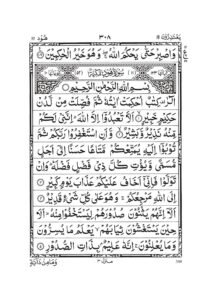 يعتذرون ١١ ٣٠٨ هود ١١
وَاصْبِرْ حَتّٰى يَحْكُمَ اللّٰهُ ۚ وَهُوَ خَيْرُ الْحٰكِمِيْنَ
بِسْمِ اللّٰهِ الرَّحْمٰنِ الرَّحِيْمِ
الٓرٰ ۚ كِتٰبٌ اُحْكِمَتْ اٰيٰتُهٗ ثُمَّ فُصِّلَتْ مِنْ لَّدُنْ
حَكِيْمٍ خَبِيْرٍ ۙ اَلَّا تَعْبُدُوْۤا اِلَّا اللّٰهَ ؕ اِنَّنِىْ لَكُمْ
مِّنْهُ نَذِيْرٌ وَّبَشِيْرٌ ۙ وَّاَنِ اسْتَغْفِرُوْا رَبَّكُمْ ثُمَّ
تُوْبُوْۤا اِلَيْهِ يُمَتِّعْكُمْ مَّتَاعًا حَسَنًا اِلٰۤى اَجَلٍ
مُّسَمًّى وَّيُؤْتِ كُلَّ ذِىْ فَضْلٍ فَضْلَهٗ ؕ وَاِنْ
تَوَلَّوْا فَاِنِّىْۤ اَخَافُ عَلَيْكُمْ عَذَابَ يَوْمٍ كَبِيْرٍ
اِلَى اللّٰهِ مَرْجِعُكُمْ ۚ وَهُوَ عَلٰى كُلِّ شَىْءٍ قَدِيْرٌ
اَلَاۤ اِنَّهُمْ يَثْنُوْنَ صُدُوْرَهُمْ لِيَسْتَخْفُوْا مِنْهُ ؕ اَلَا
حِيْنَ يَسْتَغْشُوْنَ ثِيَابَهُمْ ۙ يَعْلَمُ مَا يُسِرُّوْنَ
وَمَا يُعْلِنُوْنَ ۚ اِنَّهٗ عَلِيْمٌۢ بِذَاتِ الصُّدُوْرِ